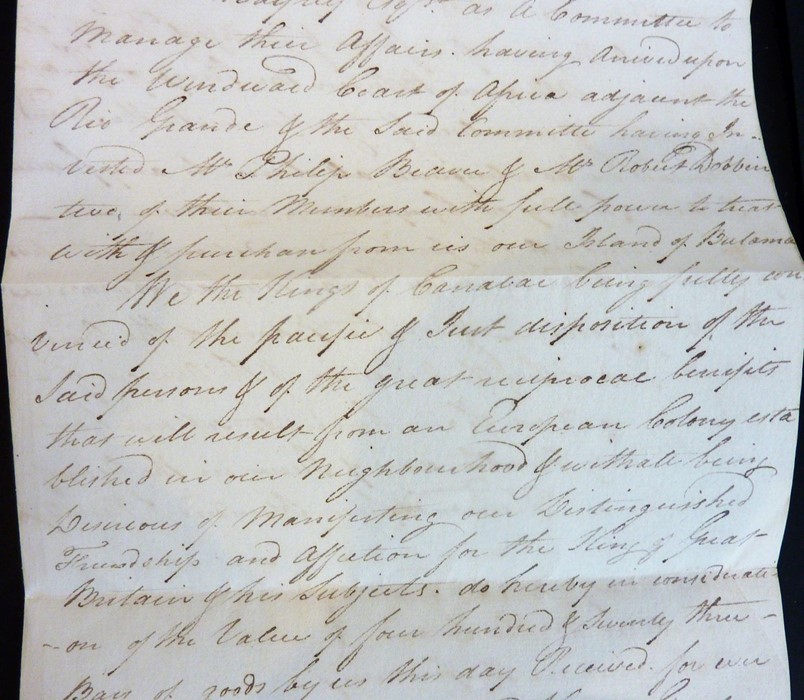 Esqr. as a Committee to
Manage their Affairs. having Arrived upon
the Windward Coast of Africa adjacent the
Rio Grande & the Said Committee having In-
vested Mr Philip Beaver & Mr Robert Dobbin
two, of their Members with full power to treat
with & purchase from us our Island of Bulama
We the Kings of Canabac being fully con
vinced of the pacific & Just disposition of the
Said persons & of the great reciprocal benefits
that will result from an European Colony esta
blished in our Neighbourhood & withall being
Desirous of Manifesting our Distinguished
Friendship and Affection for the King of Great
Britain & his Subjects. do hereby in considerati
-on of the Value of four hundred & Twenty three -
Bars of goods by us this day Received. for ever